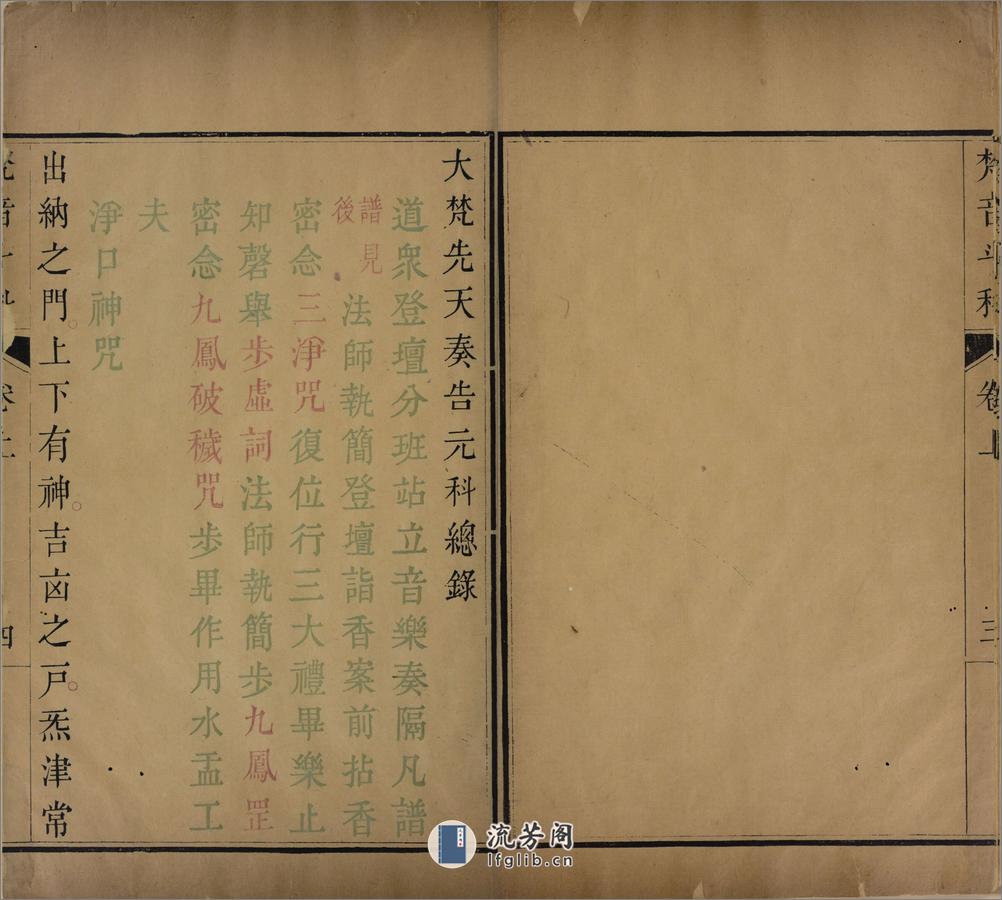 梵音斗科
卷上
三
大梵先天奏告元科總錄
道衆登壇分班站立音樂奏隔凡譜
譜見
後
法師執簡登壇詣香案前拈香
密念三淨咒復位行三大禮畢樂止
知磬舉步虛詞法師執簡步九鳳罡
密念九鳳破穢咒步畢作用水盂工
夫
淨口神咒
出納之門上下有神吉凶之戶炁津常
卷上
四
流芳阁
lfglib.cn